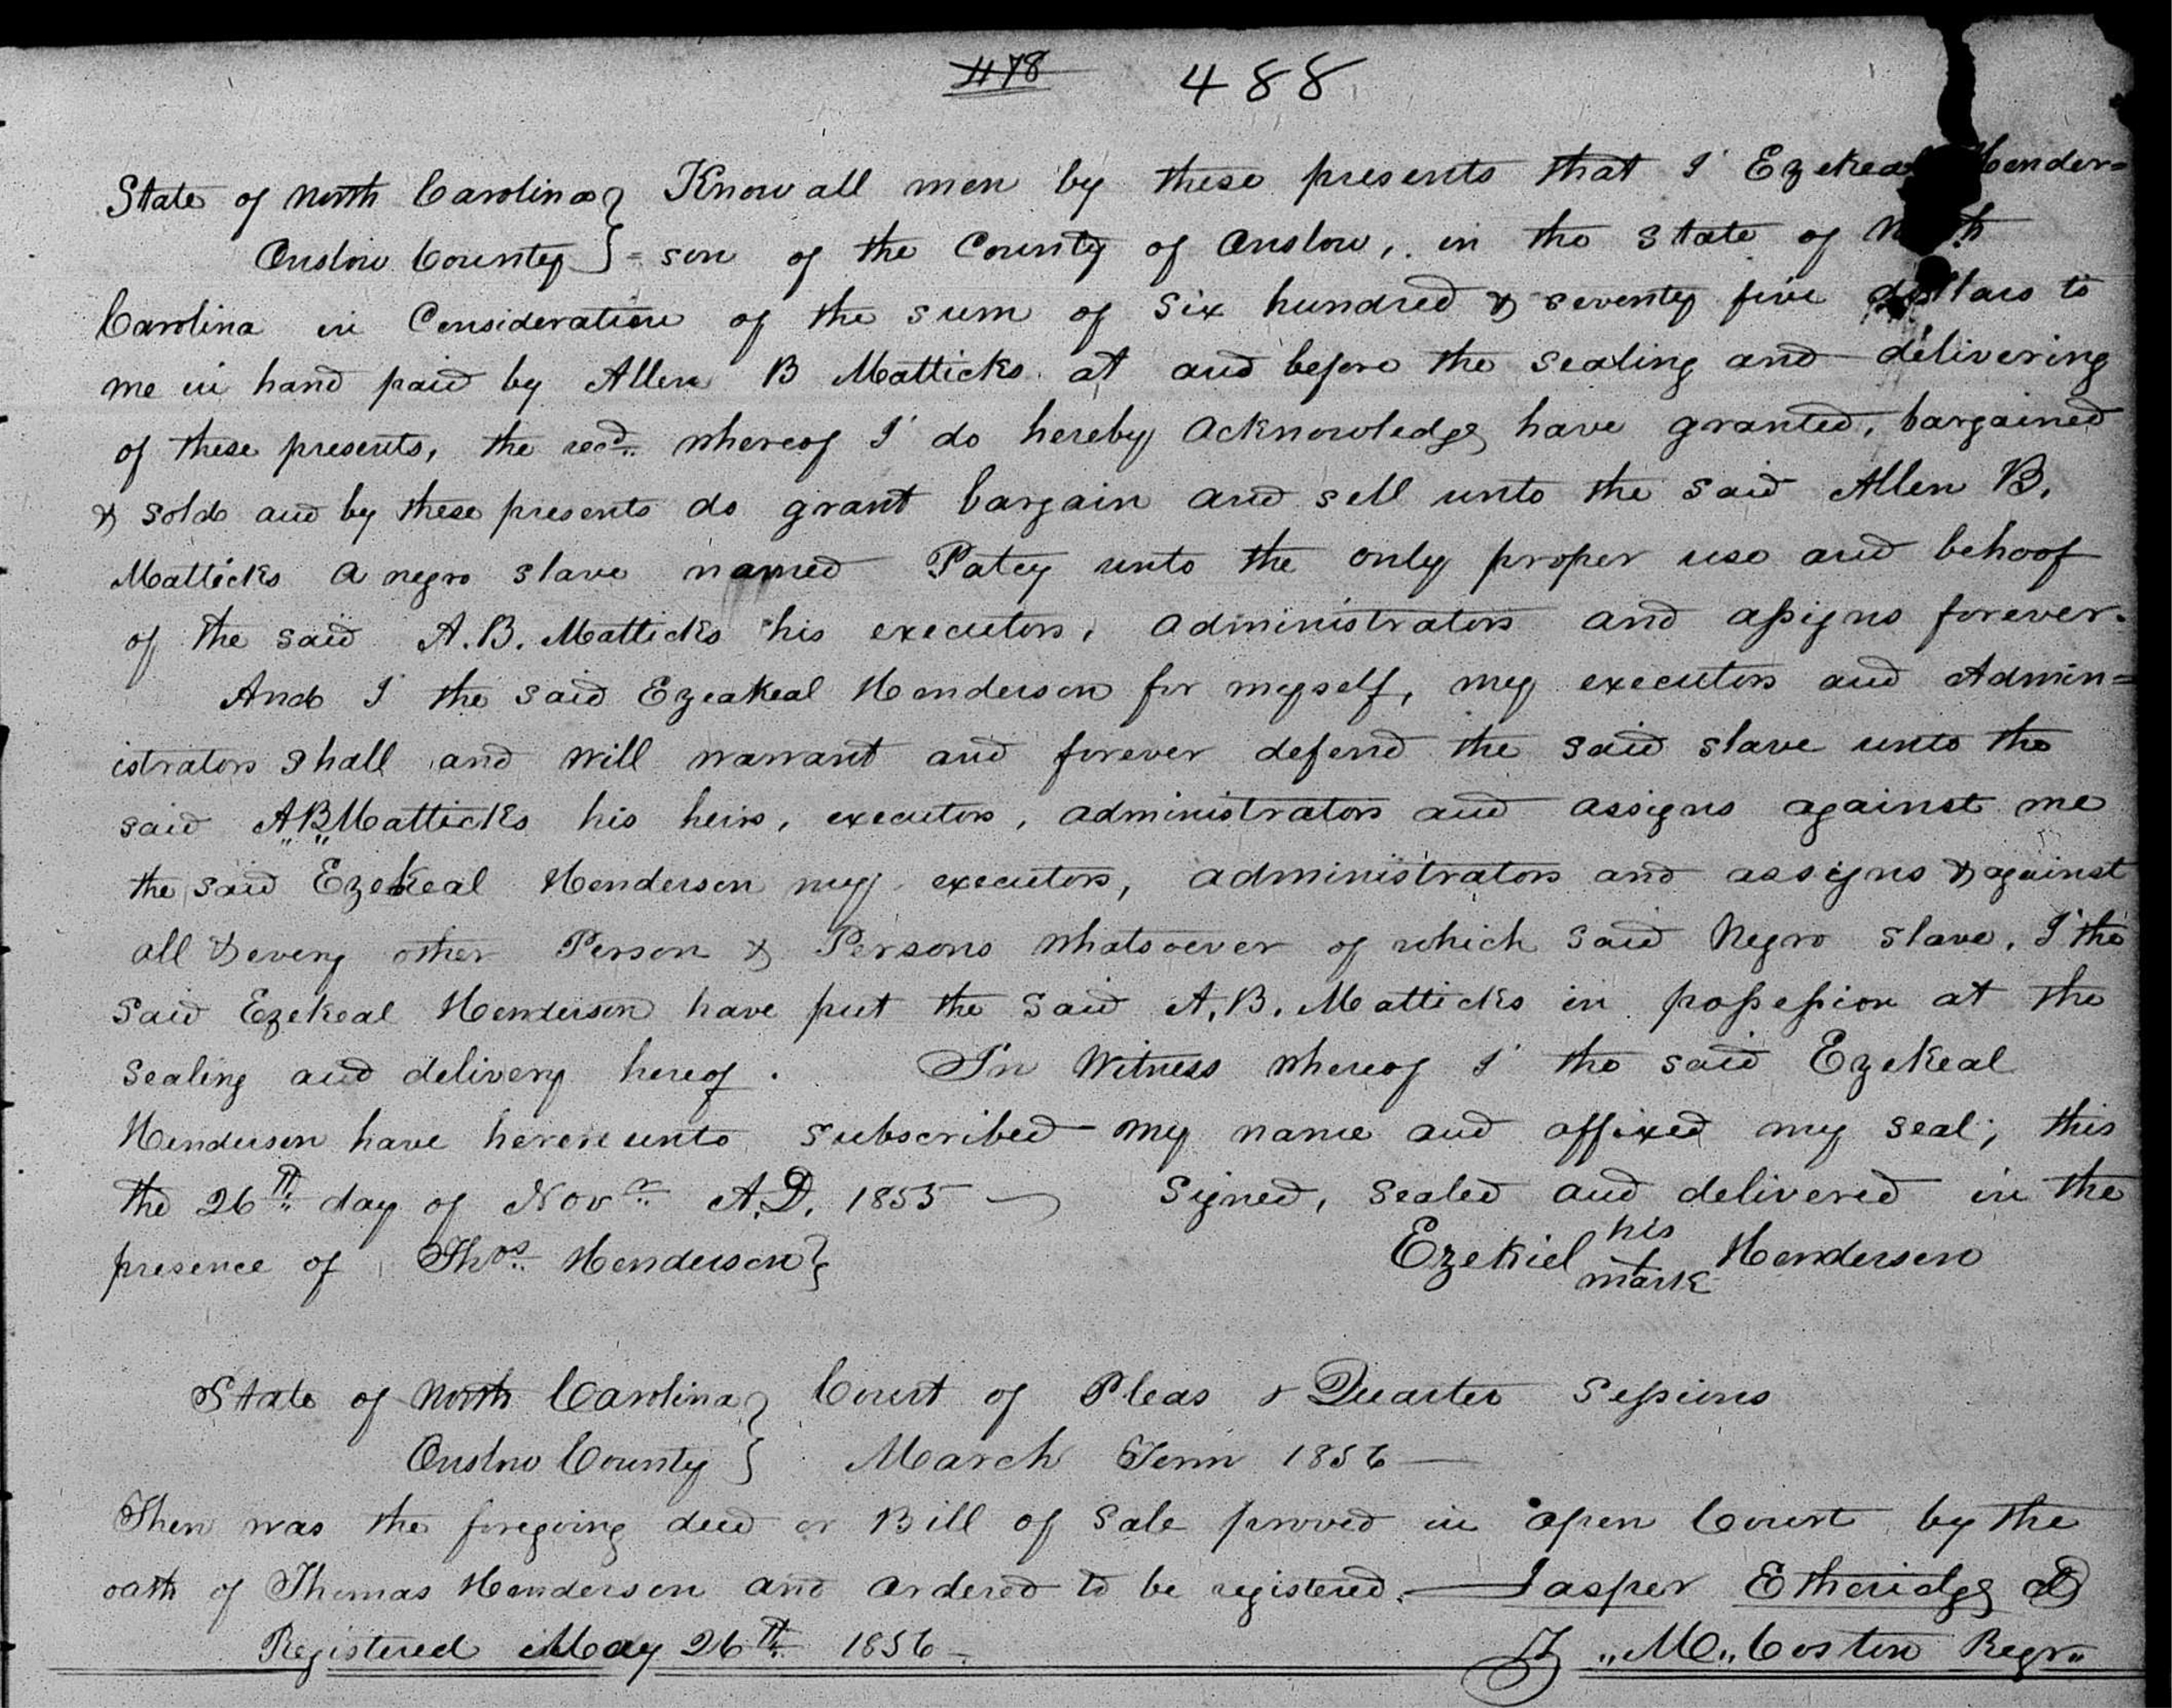 478 488
State of North Carolina } Know all men by these presents that I Ezekeal Hender=
Onslow County } = son of the County of Onslow, in the State of North
Carolina in Consideration of the sum of Six hundred & seventy five dollars to
me in hand paid by Allen B Matticks at and before the sealing and delivering
of these presents, the recd. whereof I do hereby acknowledge have granted, bargained
& sold and by these presents do grant bargain and sell unto the said Allen B.
Matticks a negro slave named Patcy unto the only proper use and behoof
of the said A.B. Matticks his executors, administrators and assigns forever.
And I the said Ezeakeal Henderson for myself, my executors and Admin=
istrators shall and will warrant and forever defend the said slave unto the
said A,,B,,Matticks his heirs, executors, administrators and assigns against me
the said Ezekeal Henderson my executors, administrators and assigns & against
all & every other Person & Persons whatsoever of which said Negro slave, I the
said Ezekeal Henderson have put the said A.B. Matticks in possession at the
sealing and delivery hereof. In Witness whereof I the said Ezekeal
Henderson have hereunto subscribed my name and affixed my seal; this
the 26th day of Novr A.D. 1855 Signed, sealed and delivered in the
presence of Thos. Henderson } Ezekiel his + mark Henderson
State of North Carolina } Court of Pleas & Quarter Sessions
Onslow County } March Term 1856 —
Then was the foregoing deed or Bill of Sale proved in open Court by the
oath of Thomas Henderson and ordered to be registered. — Jasper Etheridge
Registered May 26th 1856 — ,,M,, Costin Regr,,